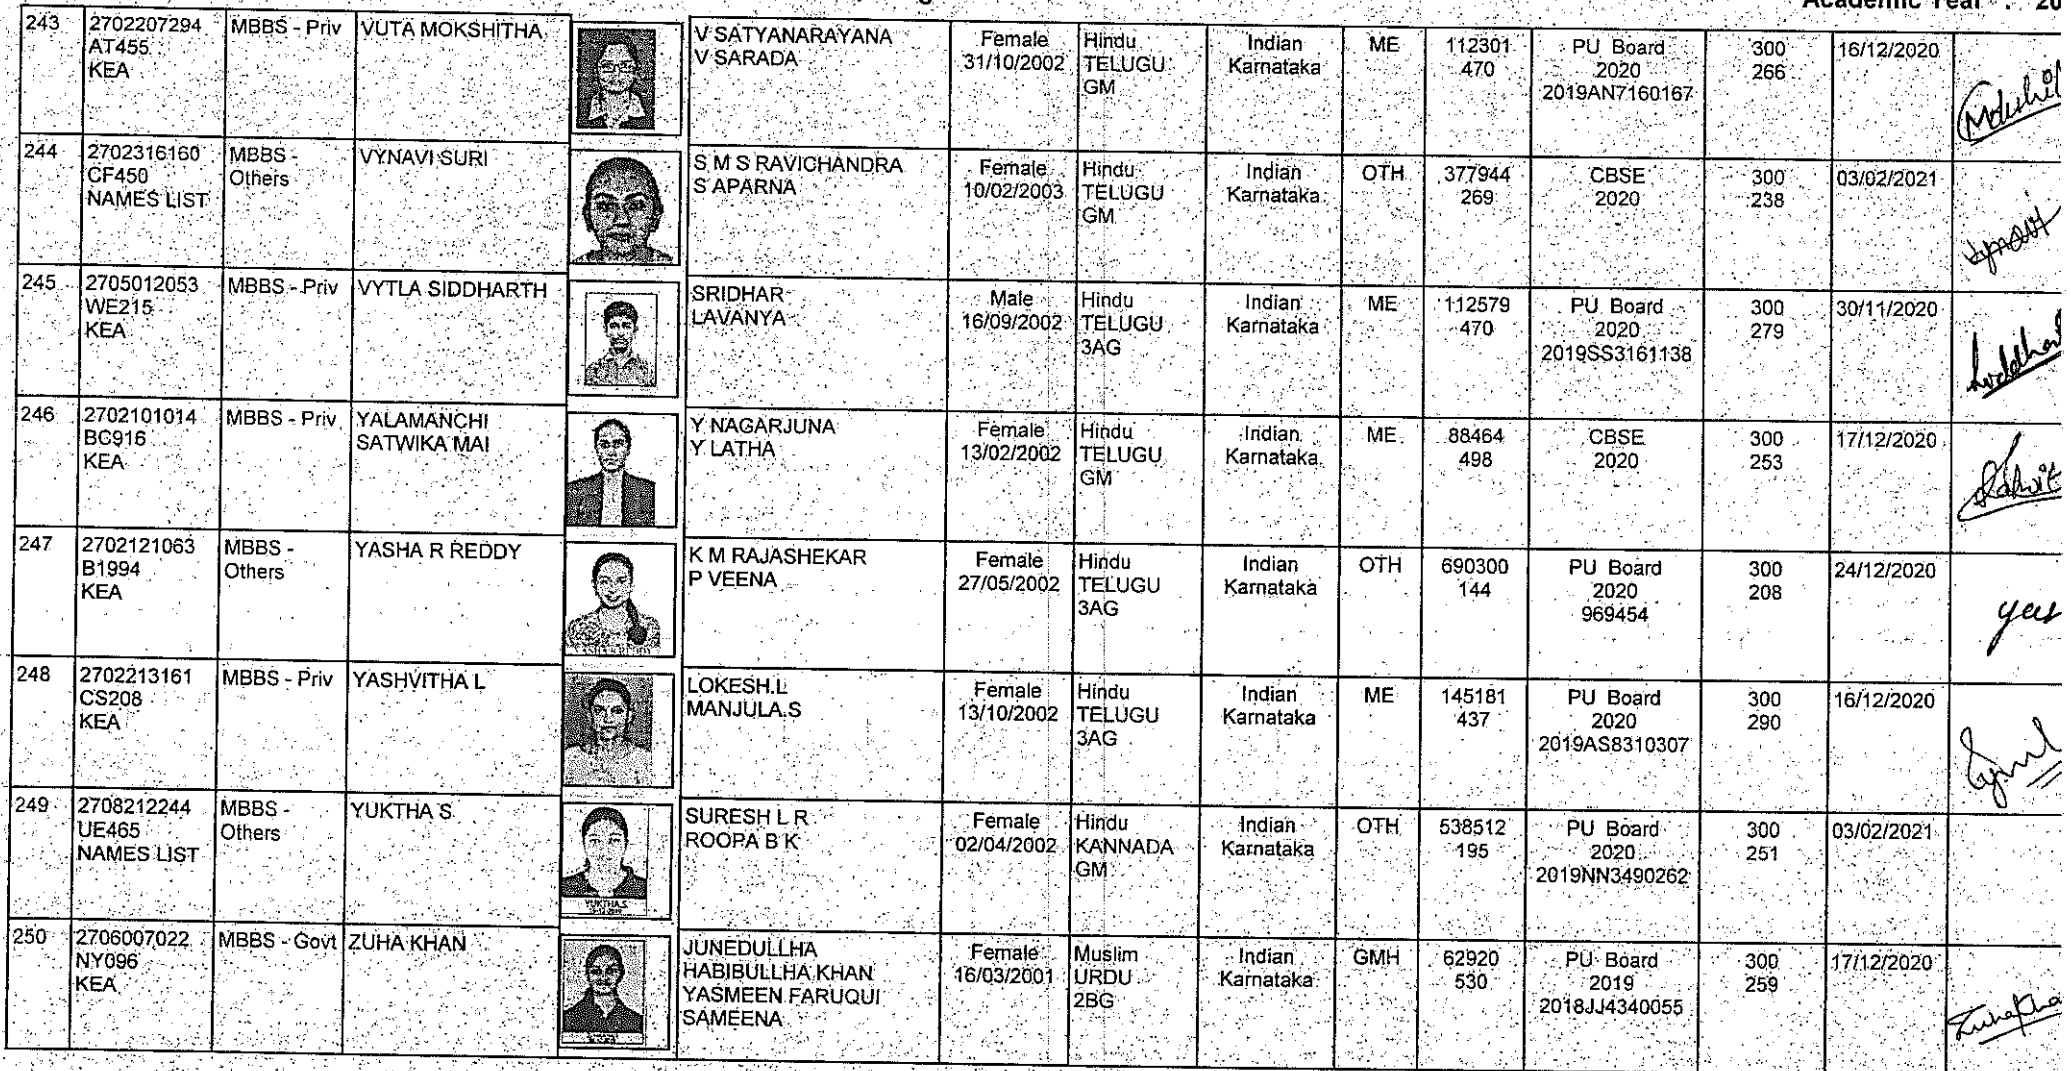 Academic Year : 20
243
2702207294
AT455
KEA
MBBS - Priv
VUTA MOKSHITHA
V SATYANARAYANA
V SARADA
Female
31/10/2002
Hindu
TELUGU
GM
Indian
Karnataka
ME
112301
470
PU Board
2020
2019AN7160167
300
266
16/12/2020
244
2702316160
CF450
NAMES LIST
MBBS -
Others
VYNAVI SURI
S M S RAVICHANDRA
S APARNA
Female
10/02/2003
Hindu
TELUGU
GM
Indian
Karnataka
OTH
377944
269
CBSE
2020
300
238
03/02/2021
245
2705012053
WE215
KEA
MBBS - Priv
VYTLA SIDDHARTH
SRIDHAR
LAVANYA
Male
16/09/2002
Hindu
TELUGU
3AG
Indian
Karnataka
ME
112579
470
PU Board
2020
2019SS3161138
300
279
30/11/2020
246
2702101014
BC916
KEA
MBBS - Priv
YALAMANCHI
SATWIKA MAI
Y NAGARJUNA
Y LATHA
Female
13/02/2002
Hindu
TELUGU
GM
Indian
Karnataka
ME
88464
498
CBSE
2020
300
253
17/12/2020
247
2702121063
B1994
KEA
MBBS -
Others
YASHA R REDDY
K M RAJASHEKAR
P VEENA
Female
27/05/2002
Hindu
TELUGU
3AG
Indian
Karnataka
OTH
690300
144
PU Board
2020
969454
300
208
24/12/2020
248
2702213161
CS208
KEA
MBBS - Priv
YASHVITHA L
LOKESH.L
MANJULA.S
Female
13/10/2002
Hindu
TELUGU
3AG
Indian
Karnataka
ME
145181
437
PU Board
2020
2019AS8310307
300
290
16/12/2020
249
2708212244
UE465
NAMES LIST
MBBS -
Others
YUKTHA S
YUKTHA.S
SURESH L R
ROOPA B K
Female
02/04/2002
Hindu
KANNADA
GM
Indian
Karnataka
OTH
538512
195
PU Board
2020
2019NN3490262
300
251
03/02/2021
250
2706007022
NY096
KEA
MBBS - Govt
ZUHA KHAN
JUNEDULLHA
HABIBULLHA KHAN
YASMEEN FARUQUI
SAMEENA
Female
16/03/2001
Muslim
URDU
2BG
Indian
Karnataka
GMH
62920
530
PU Board
2019
2018JJ4340055
300
259
17/12/2020